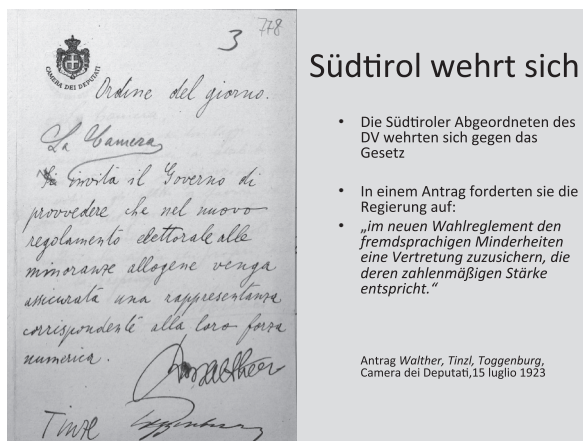 778
3
CAMERA DEI DEPUTATI
Ordine del giorno.
La Camera
invita il Governo di
provvedere che nel nuovo
regolamento elettorale alle
minoranze allogene venga
assicurata una rappresentanza
corrispondente alla loro forza
numerica.
Walther
Tinzl Toggenburg
Südtirol wehrt sich
• Die Südtiroler Abgeordneten des
DV wehrten sich gegen das
Gesetz
• In einem Antrag forderten sie die
Regierung auf:
• „im neuen Wahlreglement den
fremdsprachigen Minderheiten
eine Vertretung zuzusichern, die
deren zahlenmäßigen Stärke
entspricht.“
Antrag Walther, Tinzl, Toggenburg,
Camera dei Deputati,15 luglio 1923